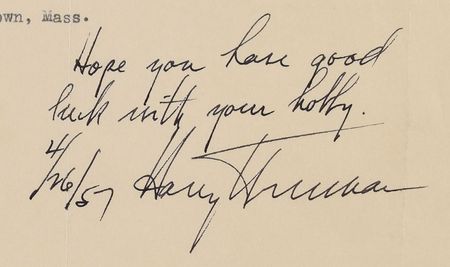 own, Mass.
Hope you have good
luck with your hobby.
4/26/57 Harry Truman